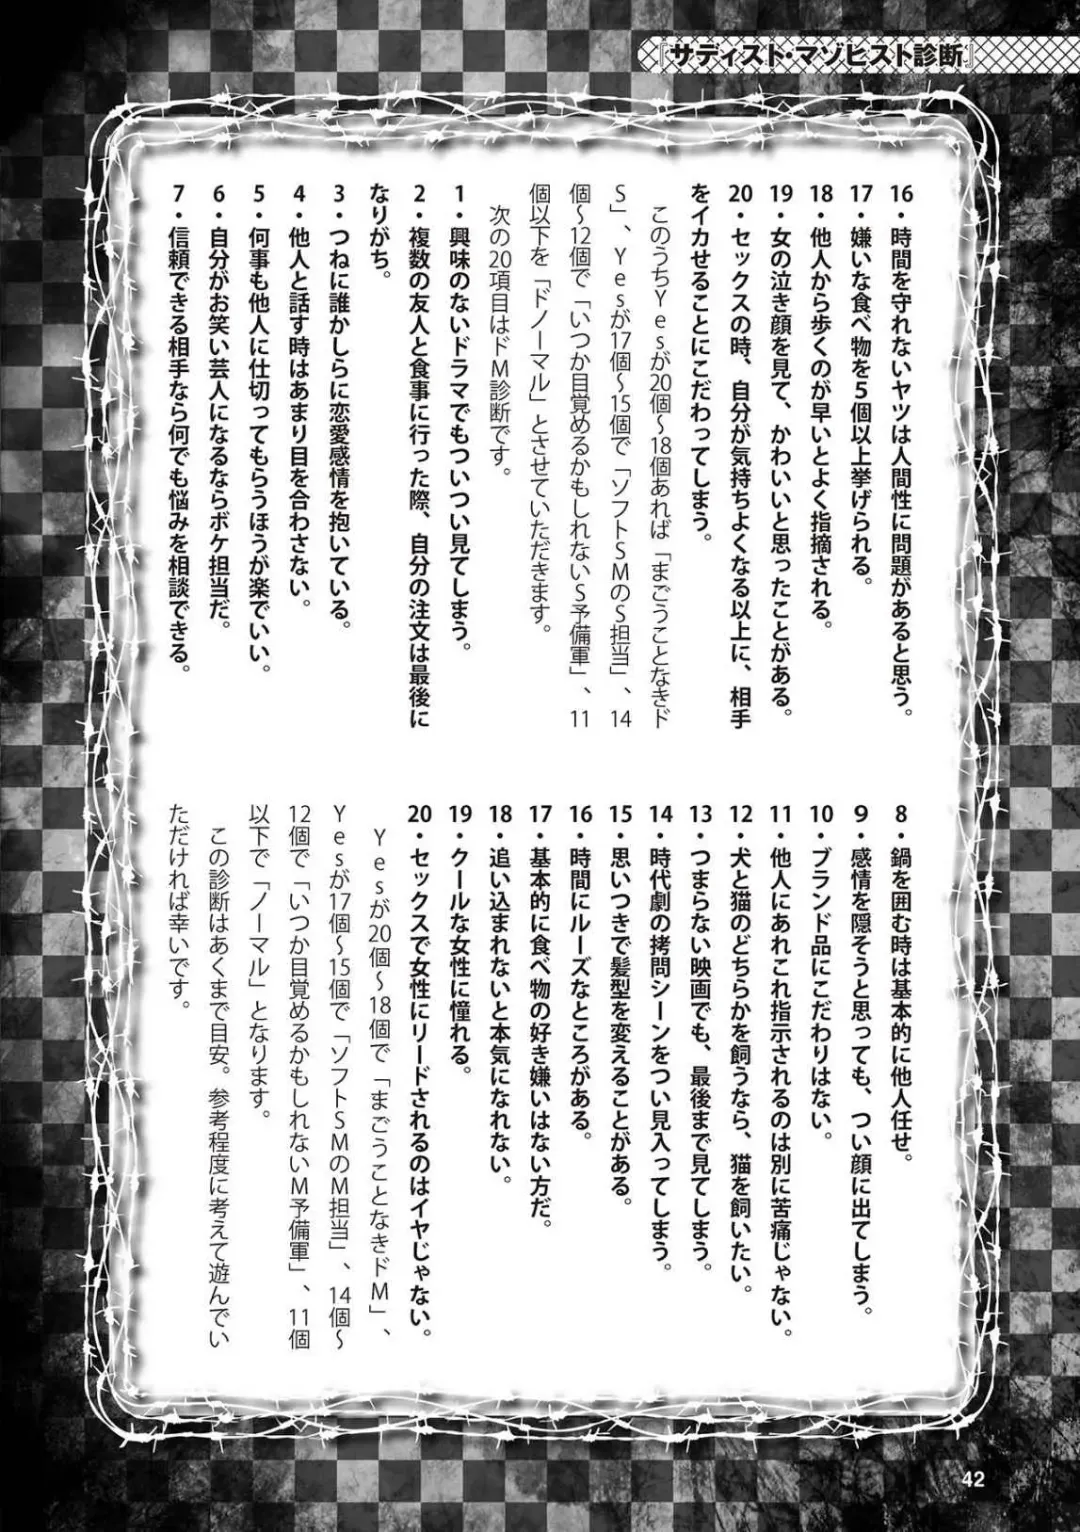 『サディスト・マゾヒスト診断』
16・時間を守れないヤツは人間性に問題があると思う。
17・嫌いな食べ物を5個以上挙げられる。
18・他人から歩くのが早いとよく指摘される。
19・女の泣き顔を見て、かわいいと思ったことがある。
20・セックスの時、自分が気持ちよくなる以上に、相手
をイカせることにこだわってしまう。
このうちYesが20個〜18個あれば「まごうことなきド
S」、Yesが17個〜15個で「ソフトSMのS担当」、14
個〜12個で「いつか目覚めるかもしれないS予備軍」、11
個以下を「ドノーマル」とさせていただきます。
次の20項目はドM診断です。
1・興味のないドラマでもついつい見てしまう。
2・複数の友人と食事に行った際、自分の注文は最後に
なりがち。
3・つねに誰かしらに恋愛感情を抱いている。
4・他人と話す時はあまり目を合わさない。
5・何事も他人に仕切ってもらうほうが楽でいい。
6・自分がお笑い芸人になるならボケ担当だ。
7・信頼できる相手なら何でも悩みを相談できる。
8・鍋を囲む時は基本的に他人任せ。
9・感情を隠そうと思っても、つい顔に出てしまう。
10・ブランド品にこだわりはない。
11・他人にあれこれ指示されるのは別に苦痛じゃない。
12・犬と猫のどちらかを飼うなら、猫を飼いたい。
13・つまらない映画でも、最後まで見てしまう。
14・時代劇の拷問シーンをつい見入ってしまう。
15・思いつきで髪型を変えることがある。
16・時間にルーズなところがある。
17・基本的に食べ物の好き嫌いはない方だ。
18・追い込まれないと本気になれない。
19・クールな女性に憧れる。
20・セックスで女性にリードされるのはイヤじゃない。
Yesが20個〜18個で「まごうことなきドM」、
Yesが17個〜15個で「ソフトSMのM担当」、14個〜
12個で「いつか目覚めるかもしれないM予備軍」、11個
以下で「ノーマル」となります。
この診断はあくまで目安。参考程度に考えて遊んでい
ただければ幸いです。
42